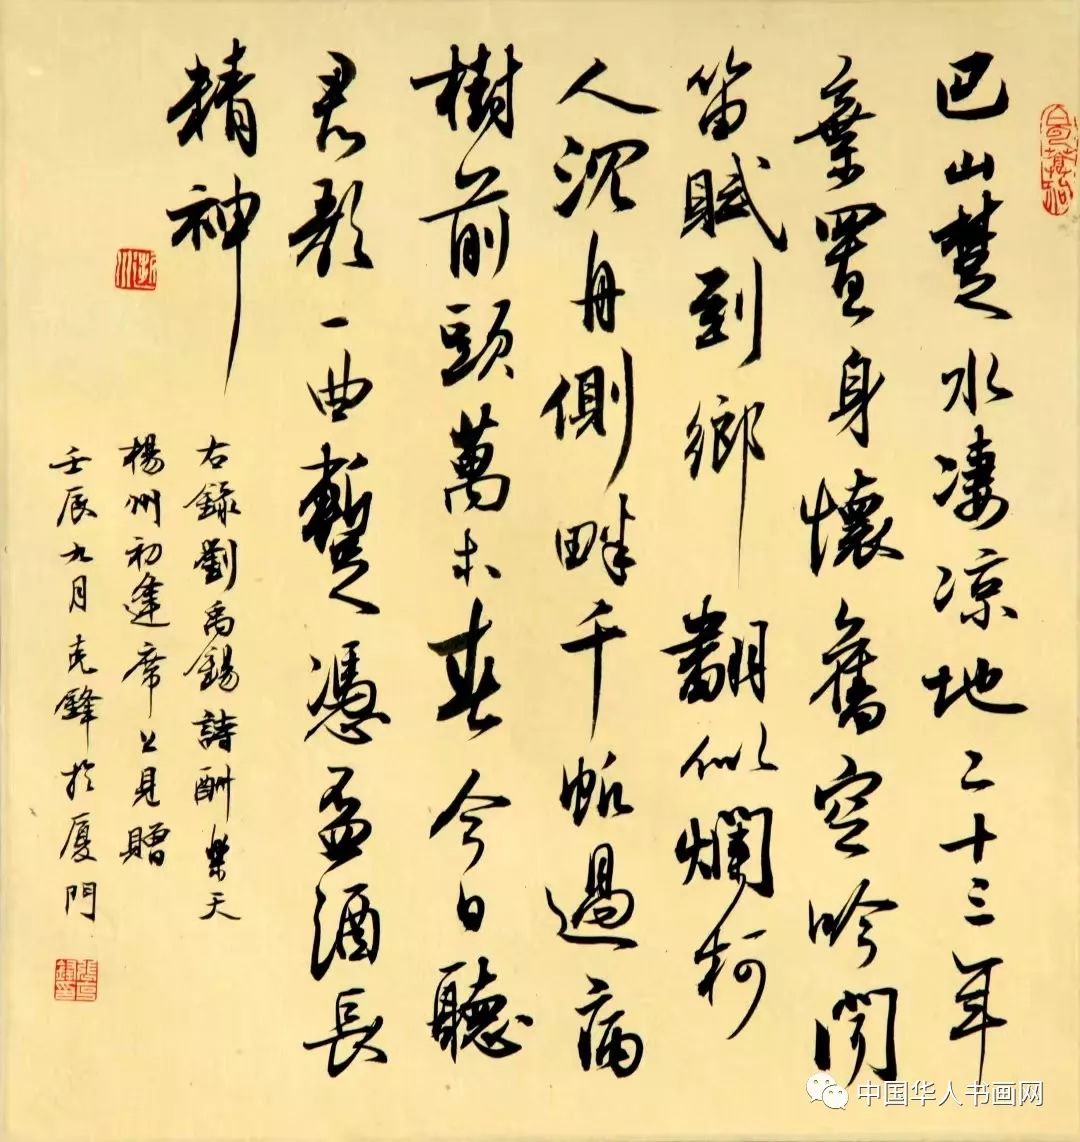 巴山楚水凄凉地二十三年
棄置身懷舊空吟聞
笛賦到鄉翻似爛柯
人沉舟側畔千帆過病
樹前頭萬木春今日聽
君歌一曲暫憑盃酒長
精神
右錄劉禹錫詩酬樂天
楊州初逢席上見贈
壬辰九月克鋒於厦門
中国华人书画网